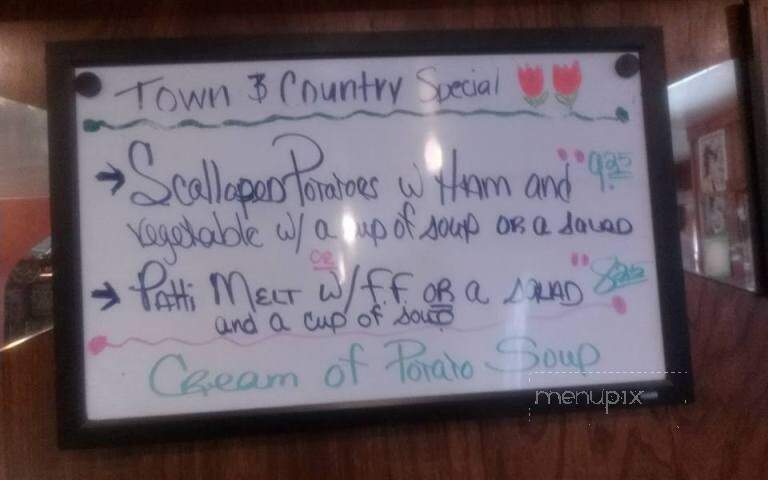 Town & Country Special
→ Scalloped Potatoes w Ham and 9.25
vegetable w/ a cup of soup OR a salad
OR
→ Patti Melt w/ f.f. OR a salad 8.25
and a cup of soup
Cream of Potato Soup
menupix